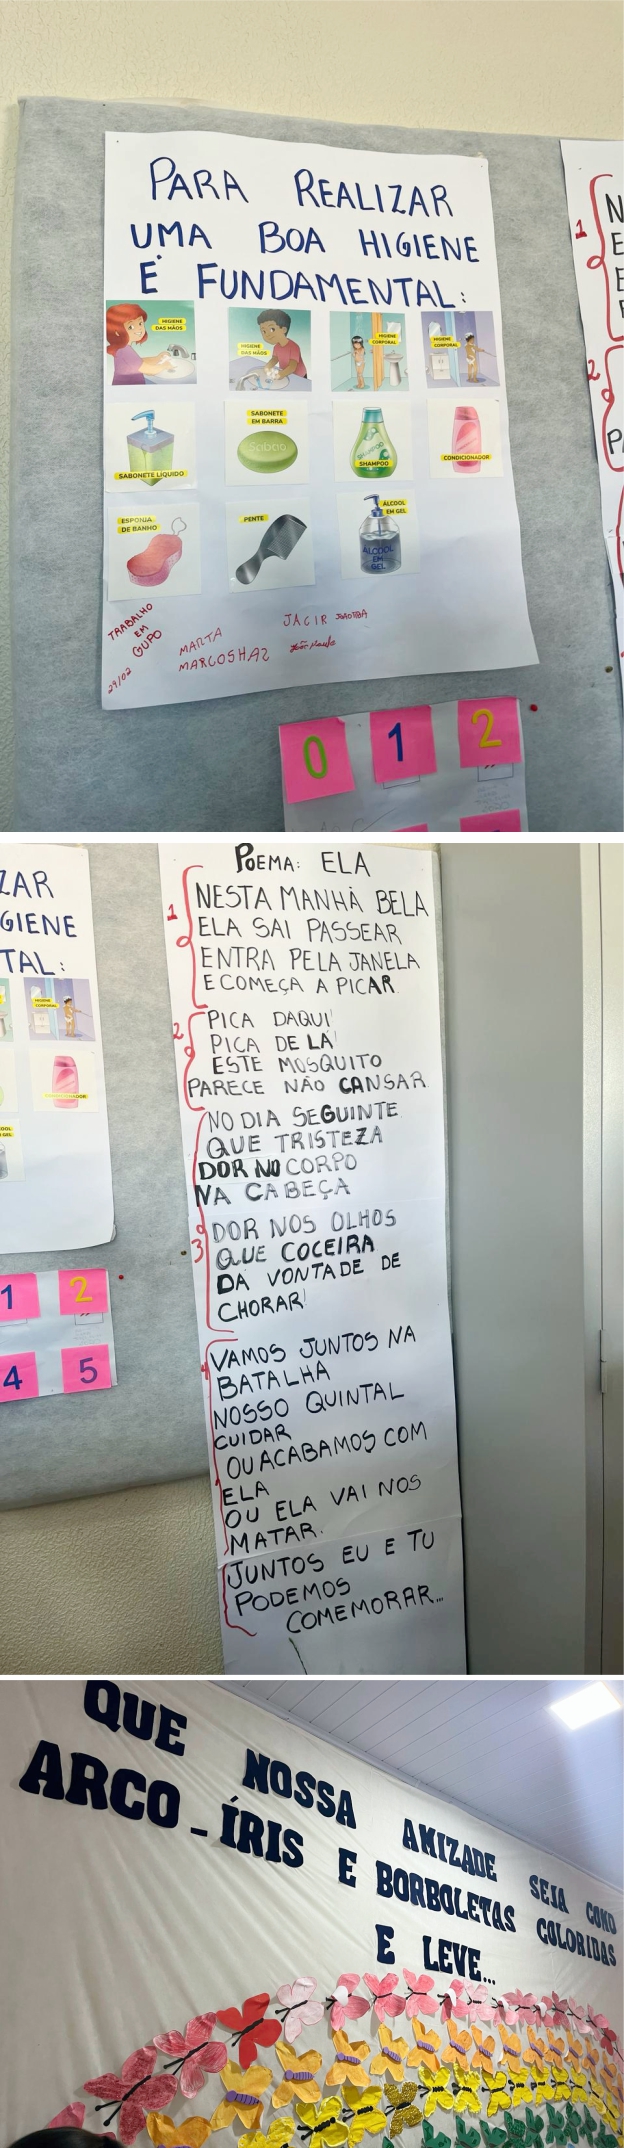 PARA REALIZAR
UMA BOA HIGIENE
É FUNDAMENTAL:
HIGIENE
DAS MÃOS
HIGIENE
DAS MÃOS
HIGIENE
CORPORAL
HIGIENE
CORPORAL
SABONETE LÍQUIDO
SABONETE
EM BARRA
Sabão
SHAMPOO
SHAMPOO
CONDICIONADOR
ESPONJA
DE BANHO
PENTE
ÁLCOOL
EM GEL
ÁLCOOL
EM
GEL
TRABALHO
EM
GUPO
29/02
MARTA
MARCOS
JACIR
João Paulo
1
2
0 1 2
ZAR
GIENE
TAL:
HIGIENE
CORPORAL
CONDICIONADOR
1 2
4 5
POEMA: ELA
1
NESTA MANHÃ BELA
ELA SAI PASSEAR
ENTRA PELA JANELA
E COMEÇA A PICAR
2
PICA DAQUI!
PICA DE LÁ!
ESTE MOSQUITO
PARECE NÃO CANSAR
NO DIA SEGUINTE
QUE TRISTEZA
DOR NO CORPO
NA CABEÇA
3
DOR NOS OLHOS
QUE COCEIRA
DA VONTADE DE
CHORAR!
4
VAMOS JUNTOS NA
BATALHA
NOSSO QUINTAL
CUIDAR
OU ACABAMOS COM
ELA
OU ELA VAI NOS
MATAR.
JUNTOS EU E TU
PODEMOS
COMEMORAR...
QUE NOSSA AMIZADE SEJA COMO
ARCO-ÍRIS E BORBOLETAS COLORIDAS
E LEVE...